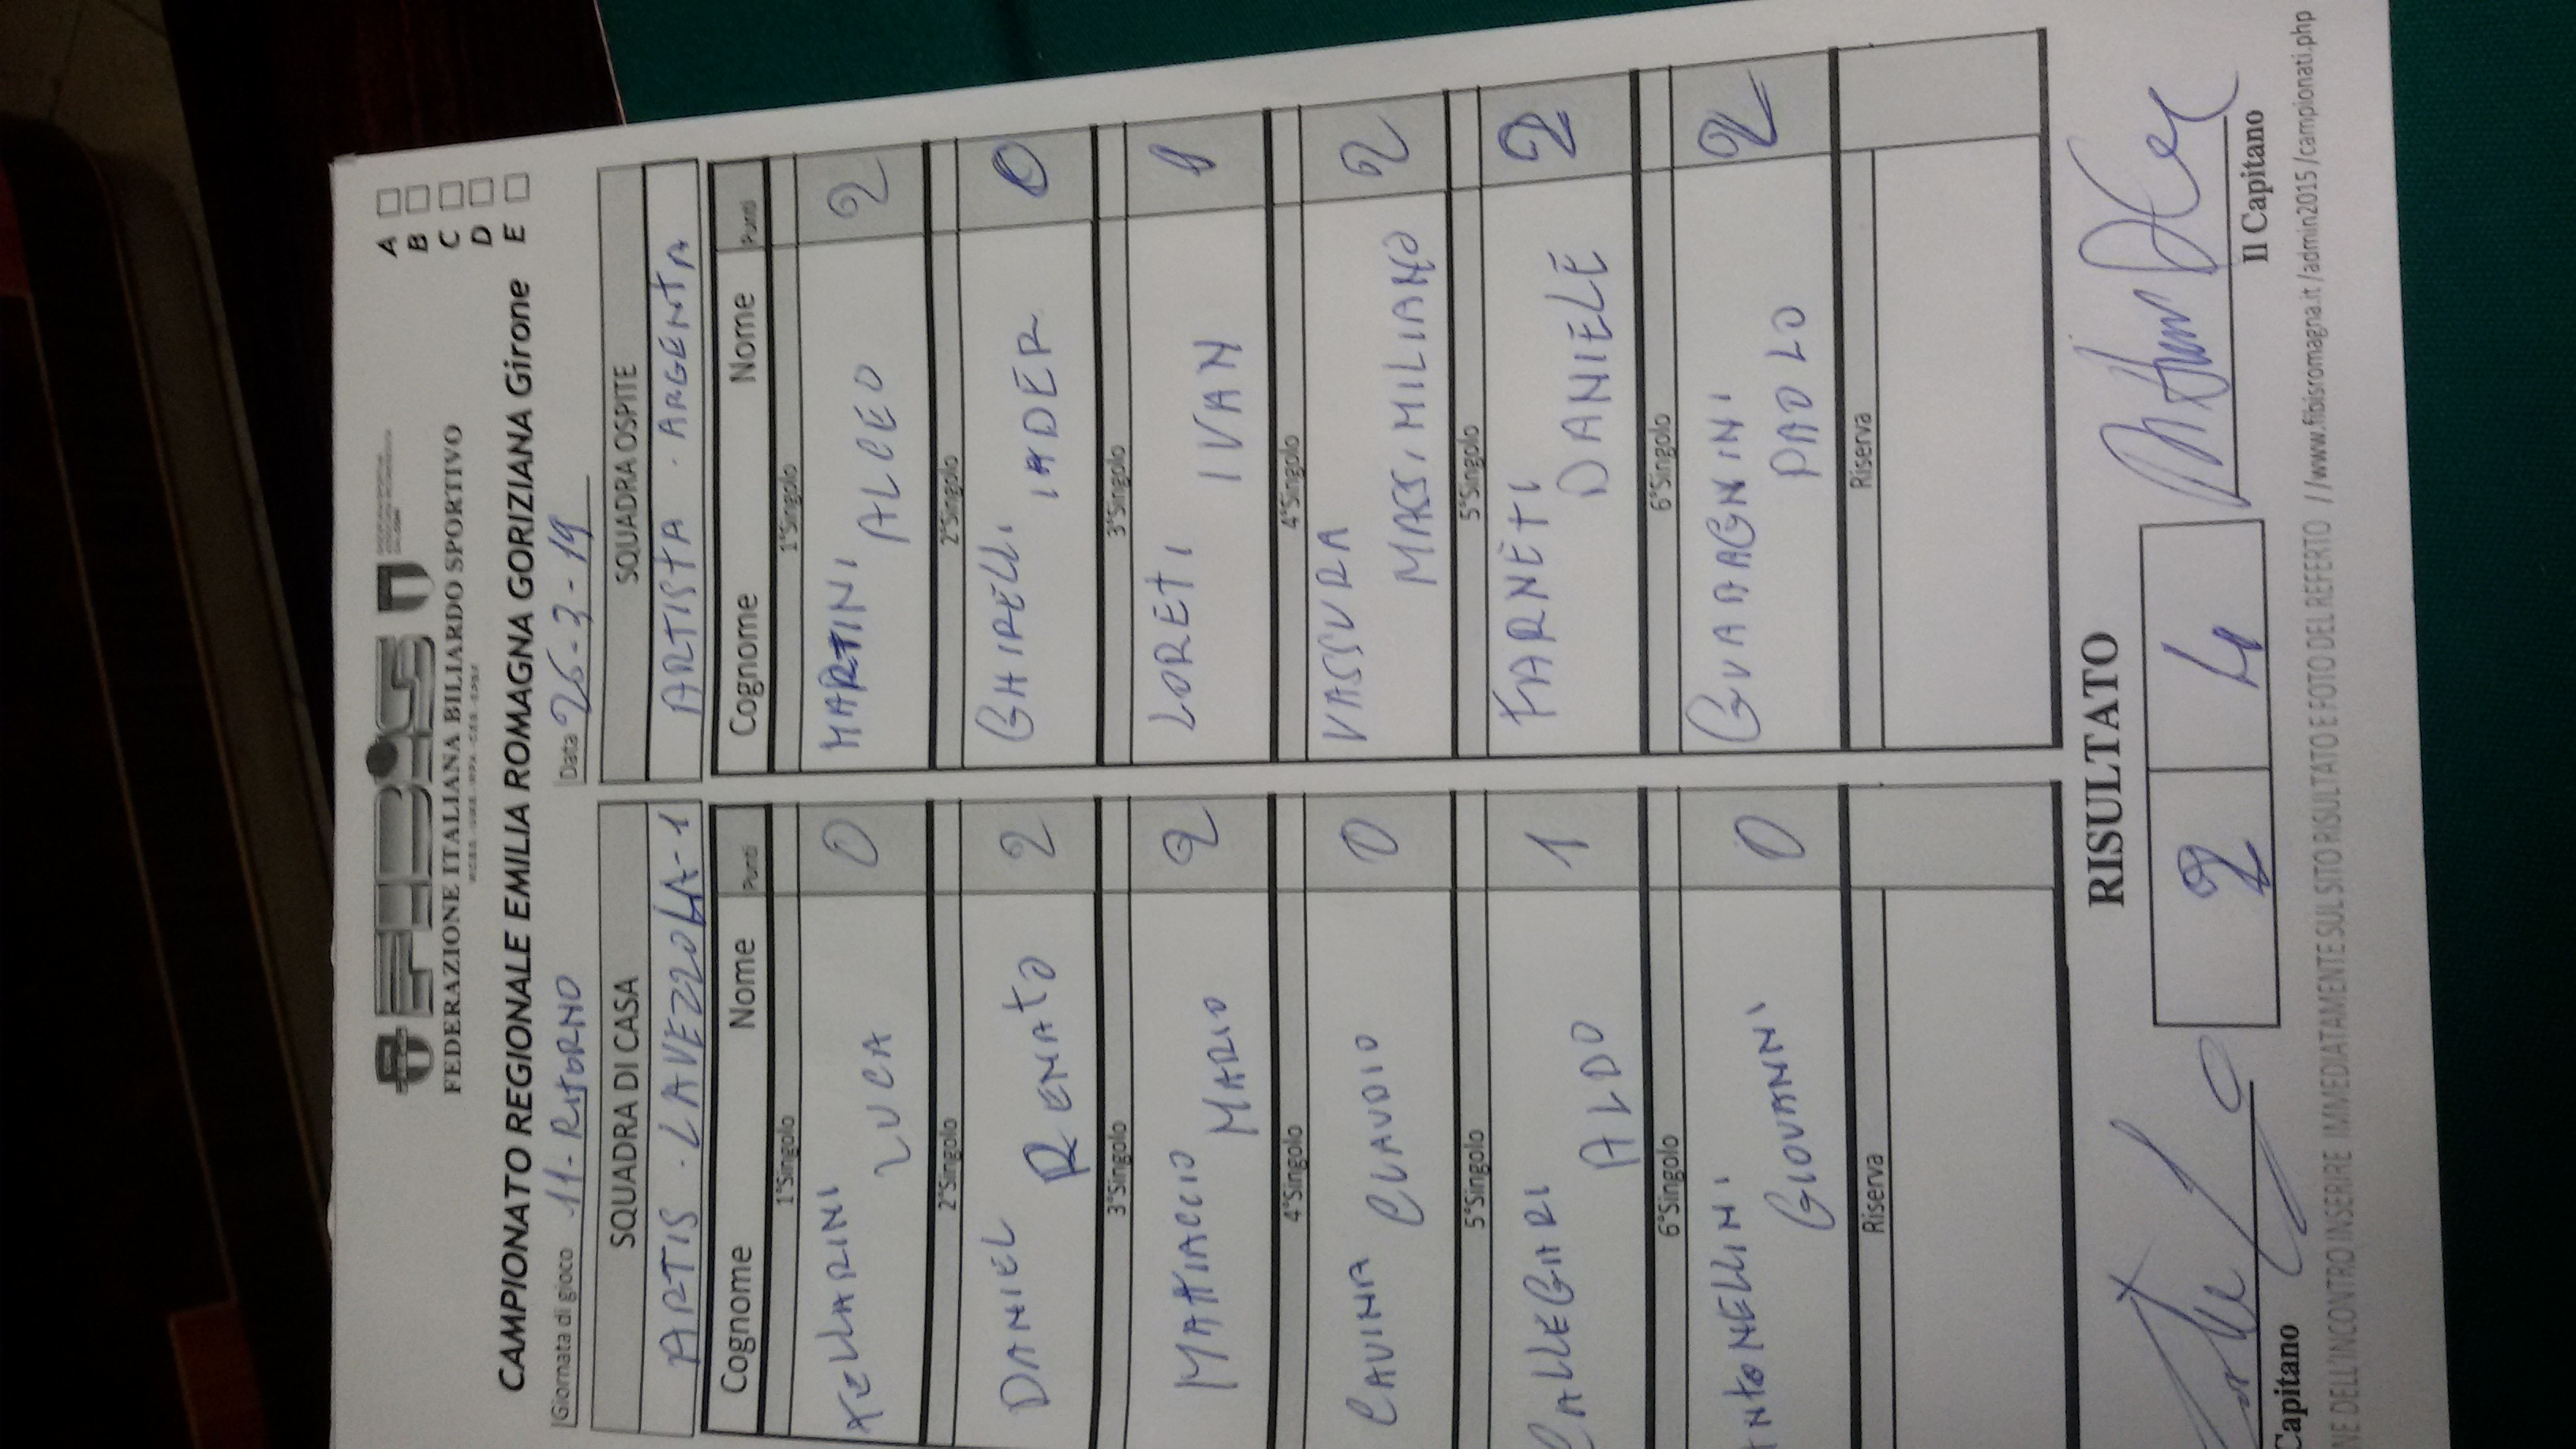 FIBiS
FEDERAZIONE ITALIANA BILIARDO SPORTIVO
CAMPIONATO REGIONALE EMILIA ROMAGNA GORIZIANA Girone
A
B
C
D
E
Giornata di gioco 11-RITORNO
Data 26-3-19
SQUADRA DI CASA
ARTIS . LAVEZZOLA-1
Cognome Nome Punti
1°Singolo
TELLARINI LUCA 0
2°Singolo
DANIEL RENATO 2
3°Singolo
MATTIACCIO MARIO 2
4°Singolo
CAVINA CLAUDIO 0
5°Singolo
CALLEGARI ALDO 1
6°Singolo
ANTONELLINI GIOVANNI 0
Riserva
SQUADRA OSPITE
ARTISTA . ARGENTA
Cognome Nome Punti
1°Singolo
MARTINI ALCEO 2
2°Singolo
GHIRELLI IADER 0
3°Singolo
LORETI IVAN 1
4°Singolo
VASSURA MASSIMILIANO 2
5°Singolo
FARNETI DANIELE 2
6°Singolo
GUADAGNINI PAOLO 2
Riserva
RISULTATO
2 4
Capitano
Il Capitano
NE DELL'INCONTRO INSERIRE IMMEDIATAMENTE SUL SITO RISULTATO E FOTO DEL REFERTO //www.fibisromagna.it/admin2015/campionati.php